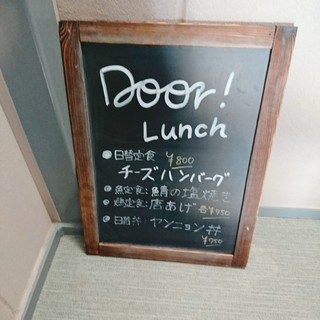 Door!
Lunch
日替定食 ¥800
チーズハンバーグ
魚定食:鯖の塩焼き
鶏定食:唐あげ 各¥750
日替丼:ヤンニョン丼
¥750